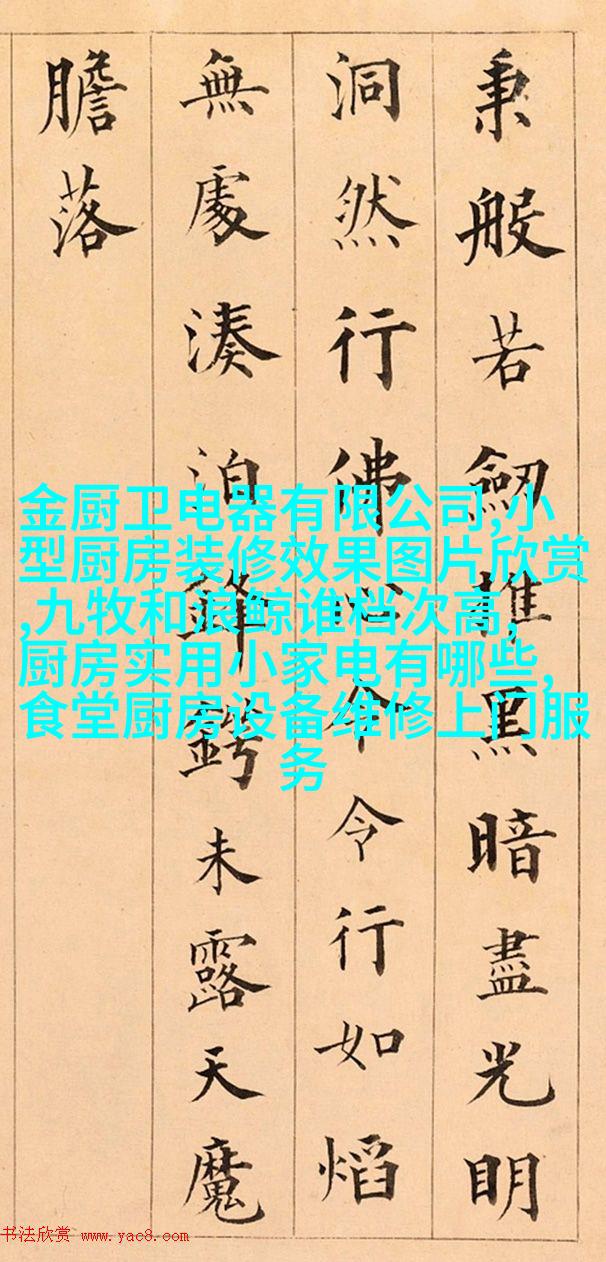 秉般若劒摧黑暗盡光明
洞然行佛心令令行如熖
無處湊泊鋒鍔未露天魔
膽落
金厨卫电器有限公司,小
型厨房装修效果图片欣赏
,九牧和浪鲸谁档次高,
厨房实用小家电有哪些,
食堂厨房设备维修上门服
务
书法欣赏 www.yac8.com